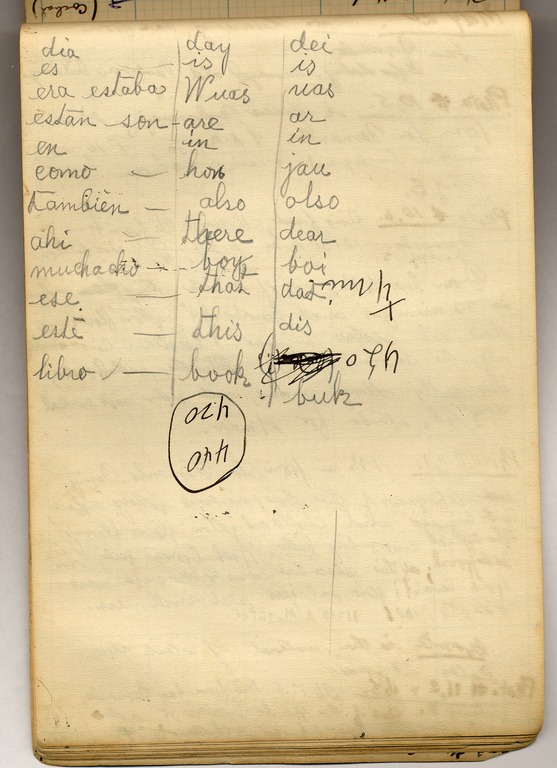 día day dei
es is is
era estaba Wuas uas
están son - are ar
en in in
como — how jau
también — also also
ahi — there dear
muchacho --- boy boi
ese — that dat
4 mm
este — this dis
libro — book buk
420
420
440